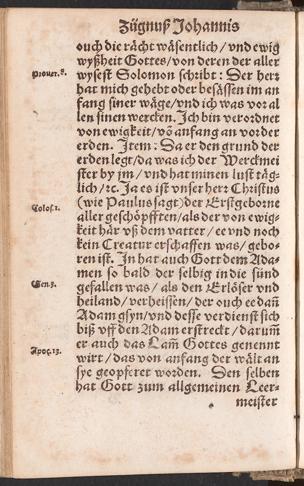 Zügnuß Johannis
ouch die rächt wäsentlich / vnd ewig
wyßheit Gottes / von deren der aller
Prouer. 8.
wysest Solomon schribt: Der herr
hat mich gehebt oder besässen im an
fang siner wäge / vnd ich was vor al
len sinen wercken. Ich bin verordnet
von ewigkeit / võ anfang an vor der
erden. Item: Da er den grund der
erden legt / da was ich der Werckmei
ster by jm / vnd hat minen lust täg-
lich / ꝛc. Ja es ist vnser herr Christus
Colos. 1.
(wie Paulus sagt) der Erstgeborne
aller geschöpfften / als der von ewig-
keit här vß dem vatter / ee vnd noch
kein Creatur erschaffen was / gebo-
ren ist. In hat auch Gott dem Ada-
men so bald der selbig in die sünd
Gen. 3.
gefallen was / als den Erlöser vnd
heiland / verheissen / der ouch ee dañ
Adam gsyn / vnd desse verdienst sich
biß vff den Adam erstreckt / darum̃
Apoc. 13.
er auch das Lam̃ Gottes genennt
wirt / das von anfang der wält an
sye geopferet worden. Den selben
hat Gott zum allgemeinen Leer-
meister